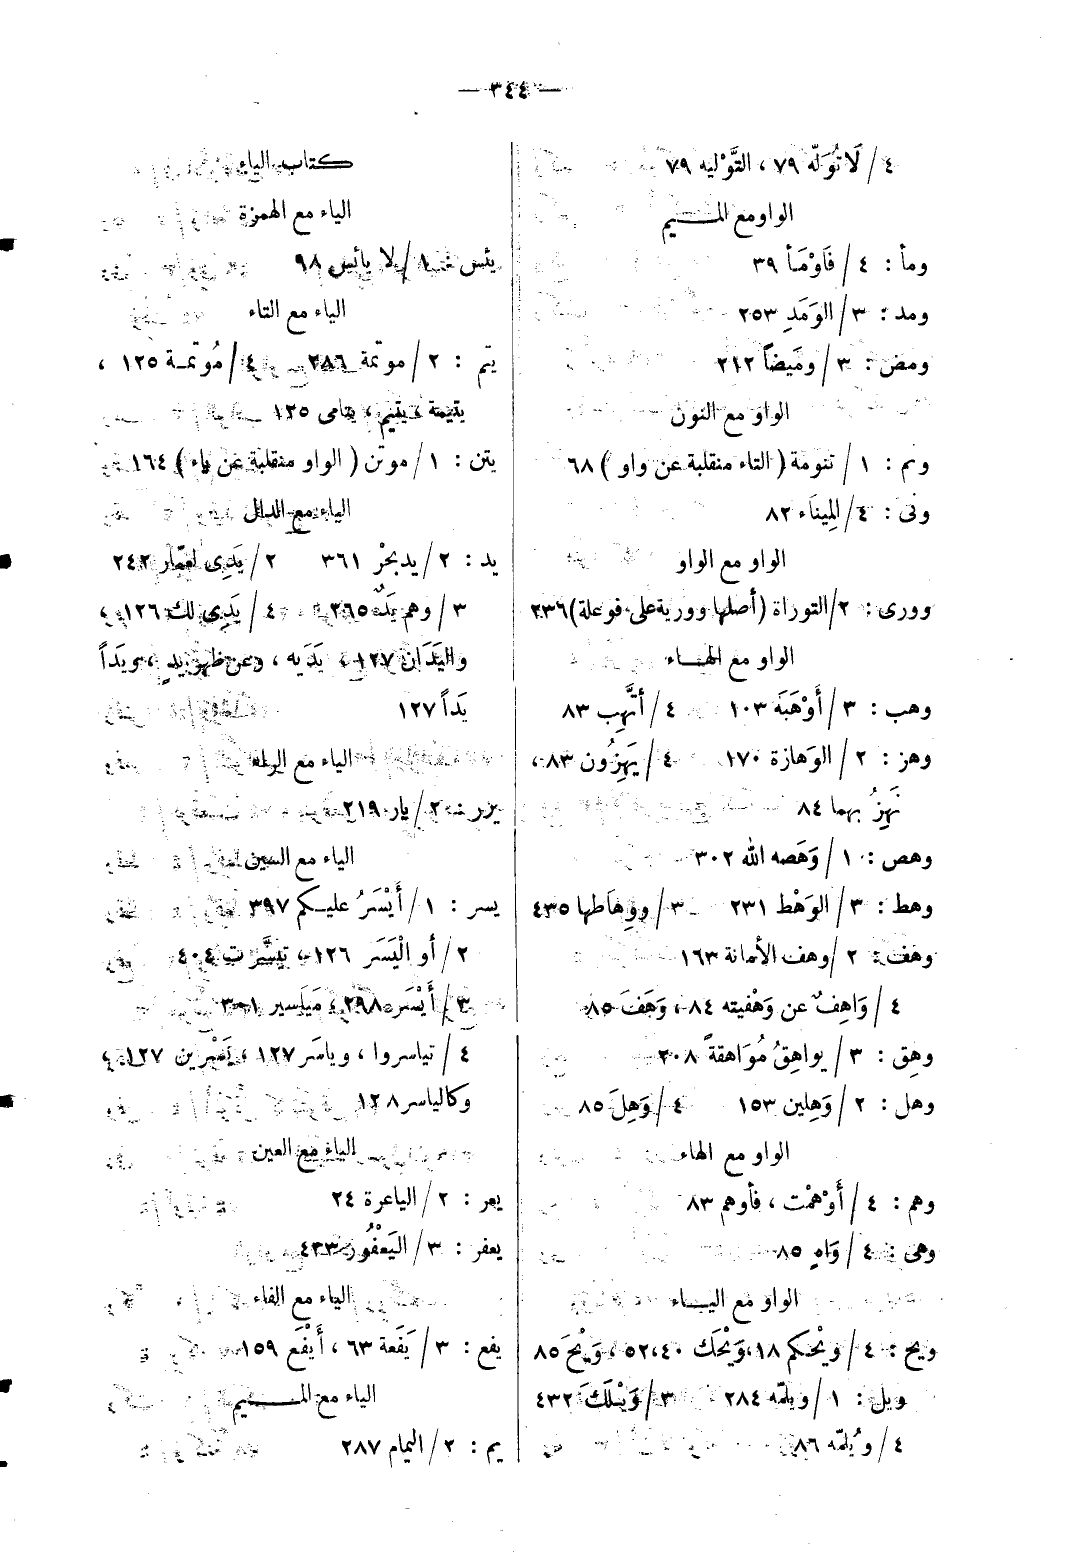 — ٣٤٤ —
٤ / لَا تُوَلَّه ٧٩ ، التَّوْليه ٧٩
الواو مع المـــيم
ومأ : ٤ / فَاَوْمَـأ ٣٩
ومد : ٣ / الوَمَدِ ٢٥٣
ومض : ٣ / ومَيضاً ٢١٢
الواو مع النون
ونم : ١ / تنومة ( التاء منقلبة عن واو ) ٦٨
ونى : ٤ / المِينَاء ٨٢
الواو مع الواو
وورى : ٢ / التوراة (أصلها وورية على فوعلة) ٢٣٦
الواو مع الهـــاء
وهب : ٣ / أَوْهَبَه ١٠٣ ٤ / أتَّهِب ٨٣
وهز : ٢ / الوَهازة ١٧٠ ٤ / يَهِزُون ٨٣ ،
نَهِزُ بهما ٨٤
وهص : ١ / وَهَصه الله ٣٠٢
وهط : ٣ / الوَهْط ٢٣١ ٣ / ووِهَاطها ٤٣٥
وهف : ٢ / وهف الأمانة ١٦٣
٤ / وَاهِفٌ عن وَهْفيته ٨٤ ، وَهَفَ ٨٥
وهق : ٣ / يواهِقُ مُوَاهقةً ٢٠٨
وهل : ٢ / وَهِلين ١٥٣ ٤ / وَهِلَ ٨٥
الواو مع الهاء
وهم : ٤ / أَوْهمْت ، فأوهم ٨٣
وهى : ٤ / وَاهٍ ٨٥
الواو مع اليـــاء
ويح : ٤ / ويْحكم ١٨ ، وَيْحَك ٤٠ ، ٥٢ ، وَيْحَ ٨٥
ويل : ١ / ويلمّه ٢٨٤ ٣ / وَيْـلَكَ ٤٣٢
٤ / وُيلمّه ٨٦
كتاب الياء
الياء مع الهمزة
يئس : ١ / لا يائس ٩٨
الياء مع التاء
يتم : ٢ / موتمة ٢٨٦ ٤ / مُوتمـة ١٢٥ ،
يتيمة ، يتيم ، يتامى ١٢٥
يتن : ١ / موتن ( الواو منقلبة عن ياء ) ١٦٤
الياء مع الدال
يد : ٢ / يد بحْر ٣٦١ ٢ / يَدَى لعمَّار ٢٤٢
٣ / وهم يَدٌ ٢٦٥ ٤ / يَدِى لك ١٢٦ ،
واليَدَان ١٢٧ ، يَدَيه ، وعن ظهر يدٍ ، ويَداً
يَداً ١٢٧
الياء مع الراء
يرر : ٢ / يار ٢١٩
الياء مع السين
يسر : ١ / أَيْسَرُ عليـكم ٣٩٧
٢ / أو الْيَسَر ١٢٦ ، تيسَّرت ٤٠٤
٣ / أَيْسَر ٢٩٨ ، مَيَاسير ٣٠١
٤ / تياسروا ، وياسَر ١٢٧ ، يَسْرين ١٢٧ ،
وكالياسر ١٢٨
الياء مع العين
يعر : ٢ / الياعرة ٢٤
يعفر : ٣ / اليَعْفُور ٤٣٣
الياء مع الفاء
يفع : ٣ / يَفَعة ٦٣ ، أَيْفَع ١٥٩
الياء مع المـــيم
يم : ٢ / اليمام ٢٨٧